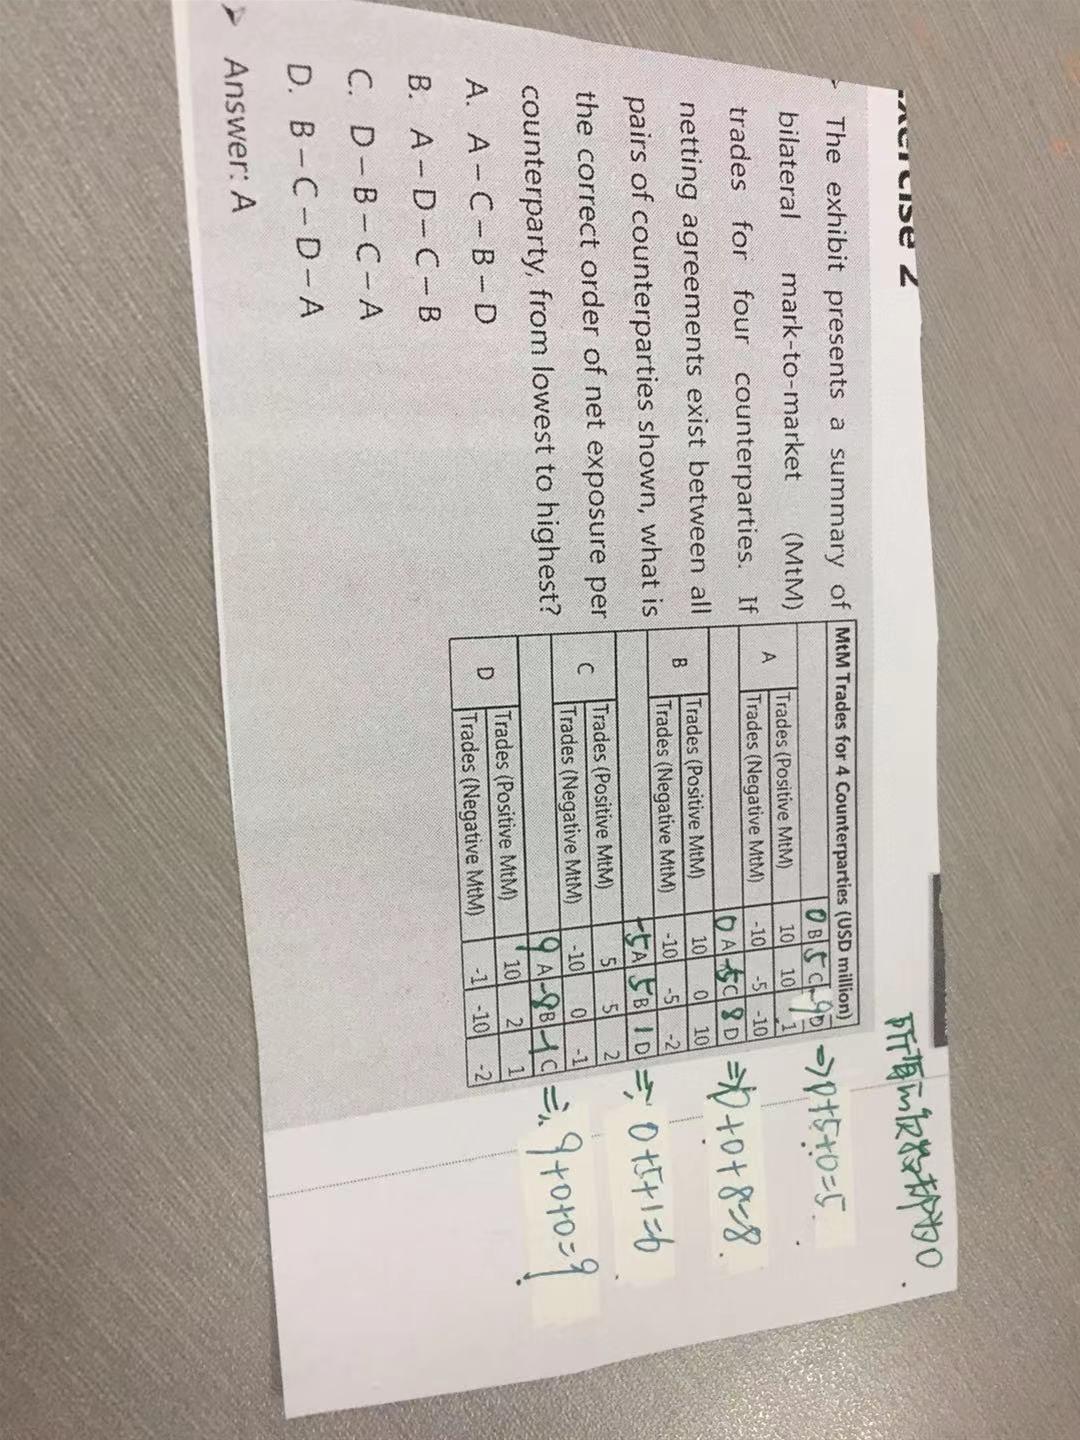 Exercise 2
The exhibit presents a summary of
bilateral mark-to-market (MtM)
trades for four counterparties. If
netting agreements exist between all
pairs of counterparties shown, what is
the correct order of net exposure per
counterparty, from lowest to highest?
A. A-C-B-D
B. A-D-C-B
C. D-B-C-A
D. B-C-D-A
Answer: A
MtM Trades for 4 Counterparties (USD million)
0 B 5 C -9 D
A
Trades (Positive MtM) 10 10 1
Trades (Negative MtM) -10 -5 -10
0 A -5 C 8 D
B
Trades (Positive MtM) 10 0 10
Trades (Negative MtM) -10 -5 -2
-5 A 5 B 1 D
C
Trades (Positive MtM) 5 5 2
Trades (Negative MtM) -10 0 -1
9 A -8 B -1 C
D
Trades (Positive MtM) 10 2 1
Trades (Negative MtM) -1 -10 -2
⇒ 0+5+0=5
⇒ 0+0+8=8
⇒ 0+5+1=6
⇒ 9+0+0=9